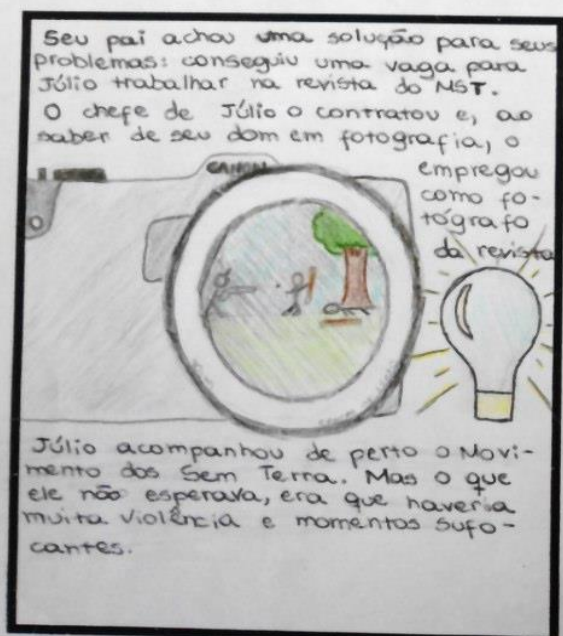 Seu pai achou uma solução para seus
problemas: conseguiu uma vaga para
Júlio trabalhar na revista do MST.
O chefe de Júlio o contratou e, ao
saber de seu dom em fotografia, o
empregou
como fo-
tógrafo
da revista
CANON
Júlio acompanhou de perto o Movi-
mento dos Sem Terra. Mas o que
ele não esperava, era que haveria
muita violência e momentos sufo-
cantes.